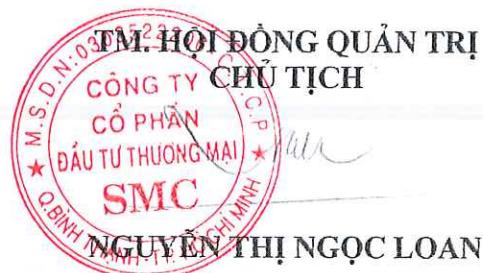 TM. HỘI ĐỒNG QUẢN TRỊ
CHỦ TỊCH
CÔNG TY
CỔ PHẦN
ĐẦU TƯ THƯƠNG MẠI
SMC
Q.BÌNH THẠNH-TP. HỒ CHÍ MINH
NGUYỄN THỊ NGỌC LOAN